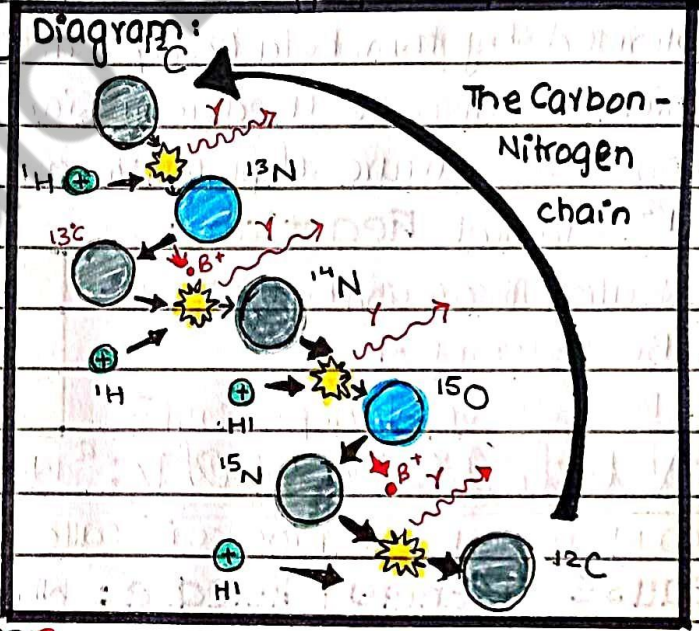 Diagram:
12C
The Carbon-
Nitrogen
chain
γ
1H +
13N
13C
γ
B+
14N
+
1H
γ
+
H1
15O
15N
B+ γ
+
H1
12C